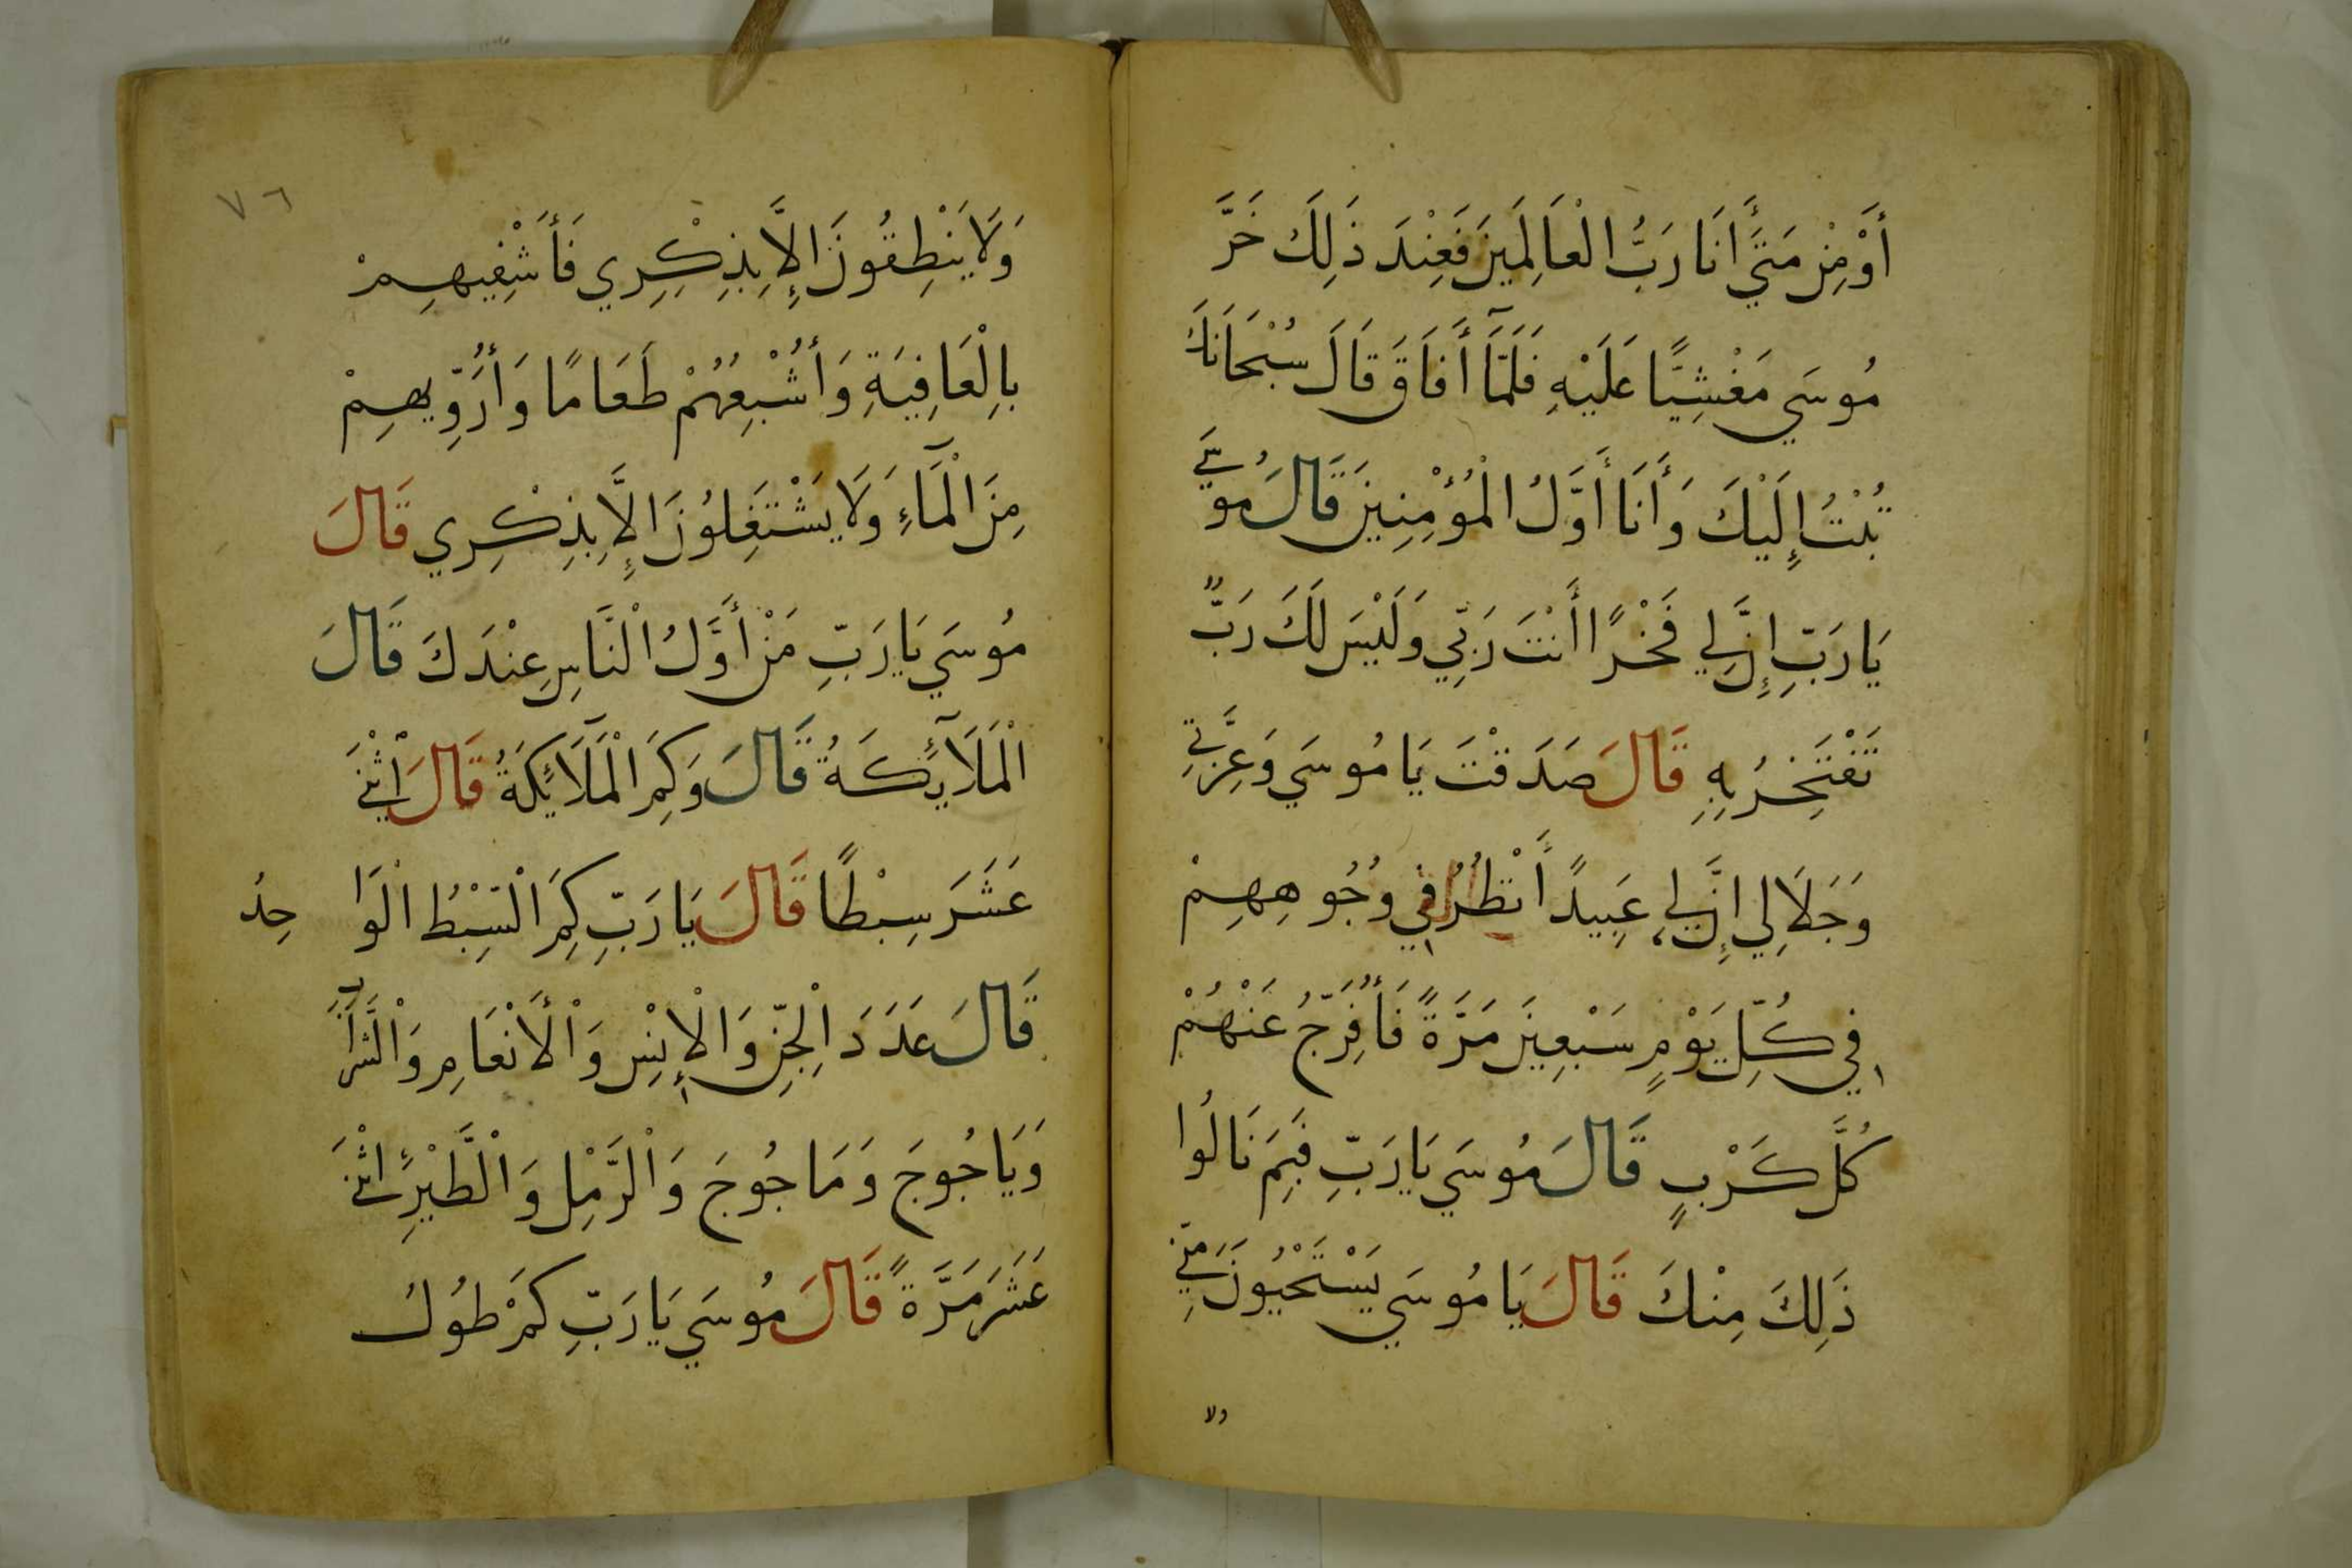 أَوْ مِنْ مَتَىَّ أَنَا رَبُّ الْعَالَمِينَ فَعِنْدَ ذَلِكَ خَرَّ
مُوسَي مَغْشِيًّا عَلَيْهِ فَلَمَّآ أَفَاقَ قَالَ سُبْحَانَكَ
تُبْتُ إِلَيْكَ وَأَنَا أَوَّلُ الْمُؤْمِنِينَ قَالَ مُوسَي
يَا رَبِّ إِنَّ لِي فَخْرًا أَنْتَ رَبِّي وَلَيْسَ لَكَ رَبٌّ
تَفْتَخِرُ بِهِ قَالَ صَدَقْتَ يَا مُوسَي وَعِزَّتِي
وَجَلَالِي إِنَّ لِي عَبِيدً أَنْظُرُ فِي وُجُوهِهِمْ
فِي كُلِّ يَوْمٍ سَبْعِينَ مَرَّةً فَأُفَرِّجُ عَنْهُمْ
كُلَّ كَرْبٍ قَالَ مُوسَي يَا رَبِّ فَبِمَ نَالُوا
ذَلِكَ مِنْكَ قَالَ يَا مُوسَي يَسْتَحْيُونَ مِنِّي
ولا
٧٦
وَلَا يَنْطِقُونَ إِلَّا بِذِكْرِي فَأَشْفِيهِمْ
بِالْعَافِيَةِ وَأُشْبِعُهُمْ طَعَامًا وَأُرَوِّيهِمْ
مِنَ الْمَآءِ وَلَا يَشْتَغِلُونَ إِلَّا بِذِكْرِي قَالَ
مُوسَي يَا رَبِّ مَنْ أَوَّلُ الْنَّاسِ عِنْدَكَ قَالَ
الْمَلَآئِكَةُ قَالَ وَكَمِ الْمَلَآئِكَةُ قَالَ اثْنَيْ
عَشَرَ سِبْطًا قَالَ يَا رَبِّ كَمِ الْسِّبْطُ الْوَاحِدُ
قَالَ عَدَدَ الْجِنِّ وَالْإِنْسِ وَالْأَنْعَامِ وَالْتُّرَابِ
وَيَاجُوجَ وَمَاجُوجَ وَالْرَّمْلِ وَالْطَّيْرِ اثْنَيْ
عَشَرَ مَرَّةً قَالَ مُوسَي يَا رَبِّ كَمْ طُولُ